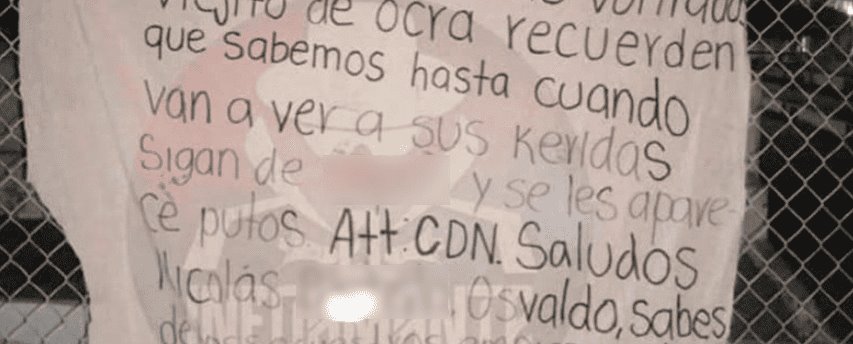 viejito de ocra recuerden
que sabemos hasta cuando
van a ver a sus keridas
Sigan de y se les apare-
ce putos. Att: CDN. Saludos
Nicolás , Osvaldo, sabes
de